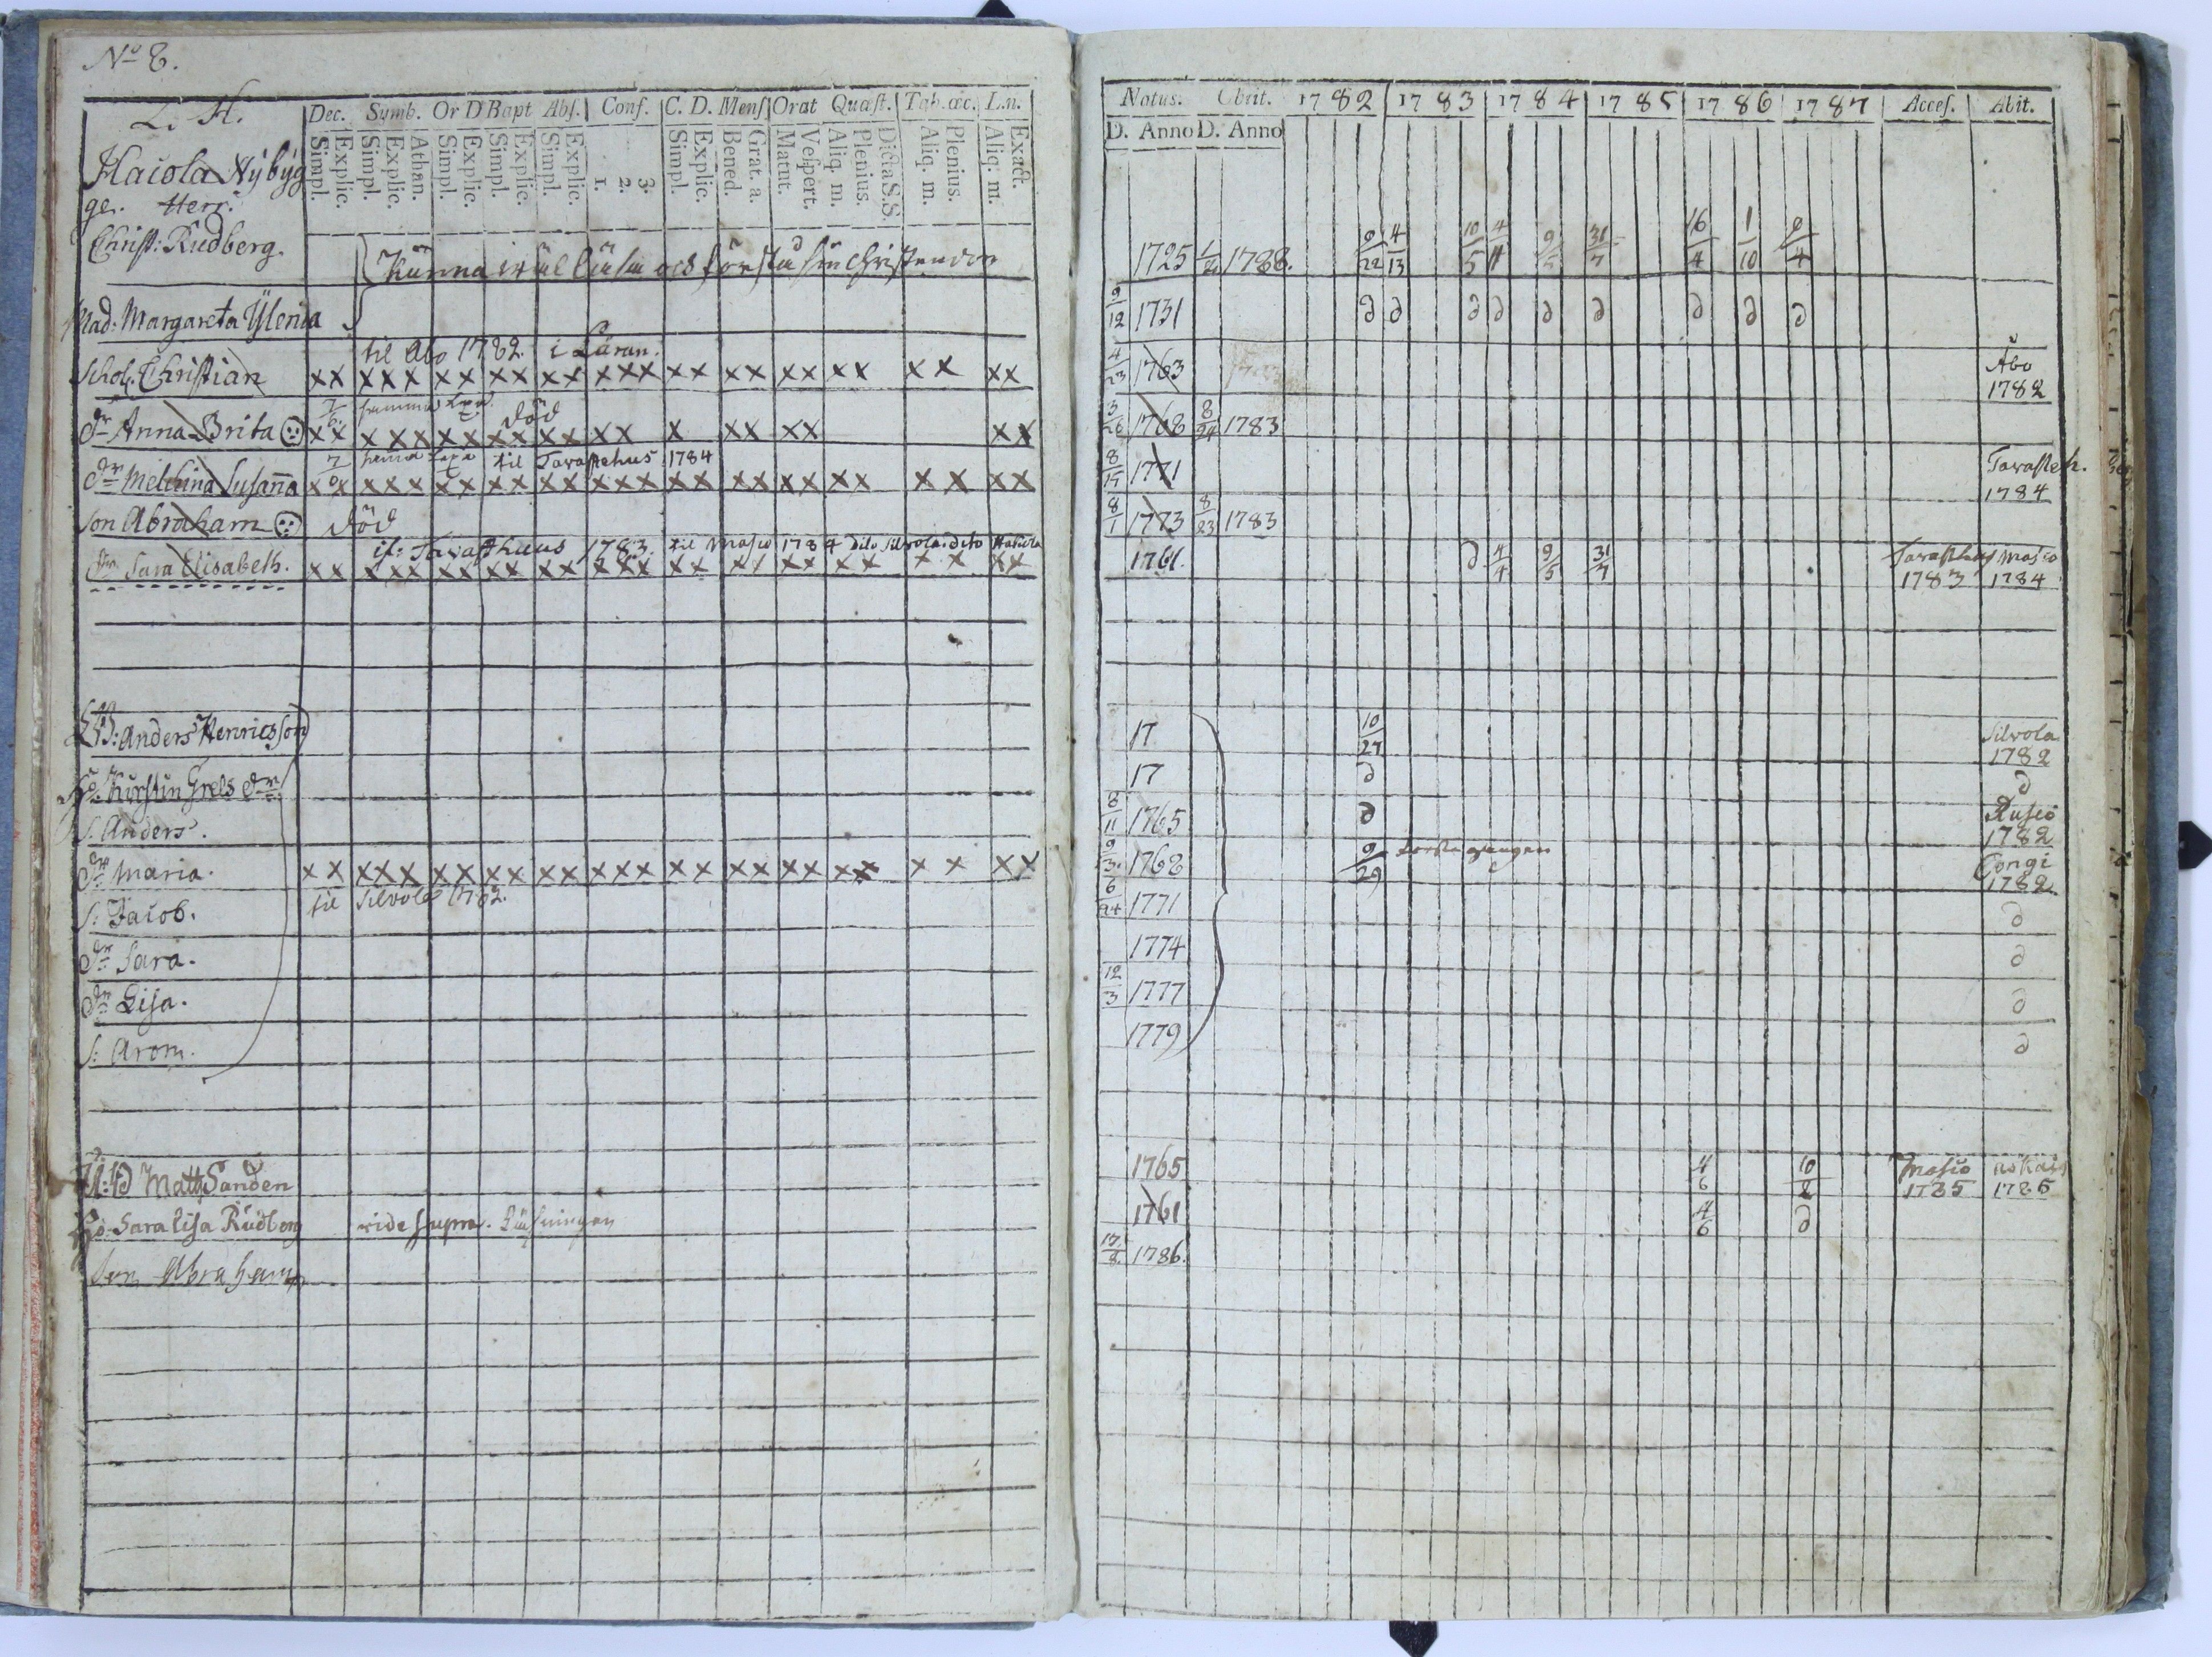 No 8.
L. H. Dec. Symb. Or D Bapt Abs. Conf. C. D. Mens. Orat Quæst. Tab. œc. L.n.
Simpl. Explic. Simpl. Explic. Athan. Simpl. Explic. Simpl. Explic. Simpl. Explic. 1. 2. 3. Simpl. Explic. Bened. Grat. a. Matut. Vespert. Aliq. m. Plenius. Dicta S.S. Aliq. m. Plenius. Aliq. m. Exact.
Haiola Nÿbÿg
ge. Herr.
Christ: Rudberg.
Kunna wäl läsa och förstå sin Christendom
Mad: Margareta Ylenia
til Åbo 1782. i Läran.
Schol. Christian xx xxx xx xx xx xxx xx xx xx xx xx xx
död
dr Anna Brita xx xxx xx xx xx xx x xx xx xx
til Tavastehus 1784
dr Melchina Susana xx xxx xx xx xx xxx xx xx xx xx xx xx
son Abraham död
if: Tavasthuus 1783. til Masio 1784 dito Silvola: dito Haiola
dr Sara Elisabeth. xx xxx xx xx xx xxx xx xx xx xx xx xx
Anders Henricsson
Hu. Kirstin Grels dr
S. Anders.
dr Maria. xx xxx xx xx xx xxx xx xx xx xx xx xx
S. Jacob. til Silvola 1782.
dr Sara.
dr Lisa.
S: Arom.
Matts Sanden
Hu. Sara Lisa Rudberg vide supra. Läsningen
Son Abraham
Natus. Obiit. 1782 1783 1784 1785 1786 1787 Acces. Abit.
D. Anno D. Anno
1725 1788. 9/22 4/13 10/5 4/11 9/5 31/7 16/4 1/10 9/4
9/12 1731 d d d d d d d d d
4/23 1763 Åbo
1782
3/26 1768 8/24 1783
8/15 1771 Tavasteh.
1784
8/1 1773 8/23 1783
1761. d 4/4 9/5 31/7 Tavasthus Masio
1783 1784
17 10/27 Silvola
1782
17 d d
8/11 1765 d Rusio
1782
9/3 1768 9/29 första gången Congi
1782
6/24 1771 d
1774 d
12/3 1777 d
1779 d
1765 4/6 10/2 Masio
1785 1786
1761 4/6 d
1786.